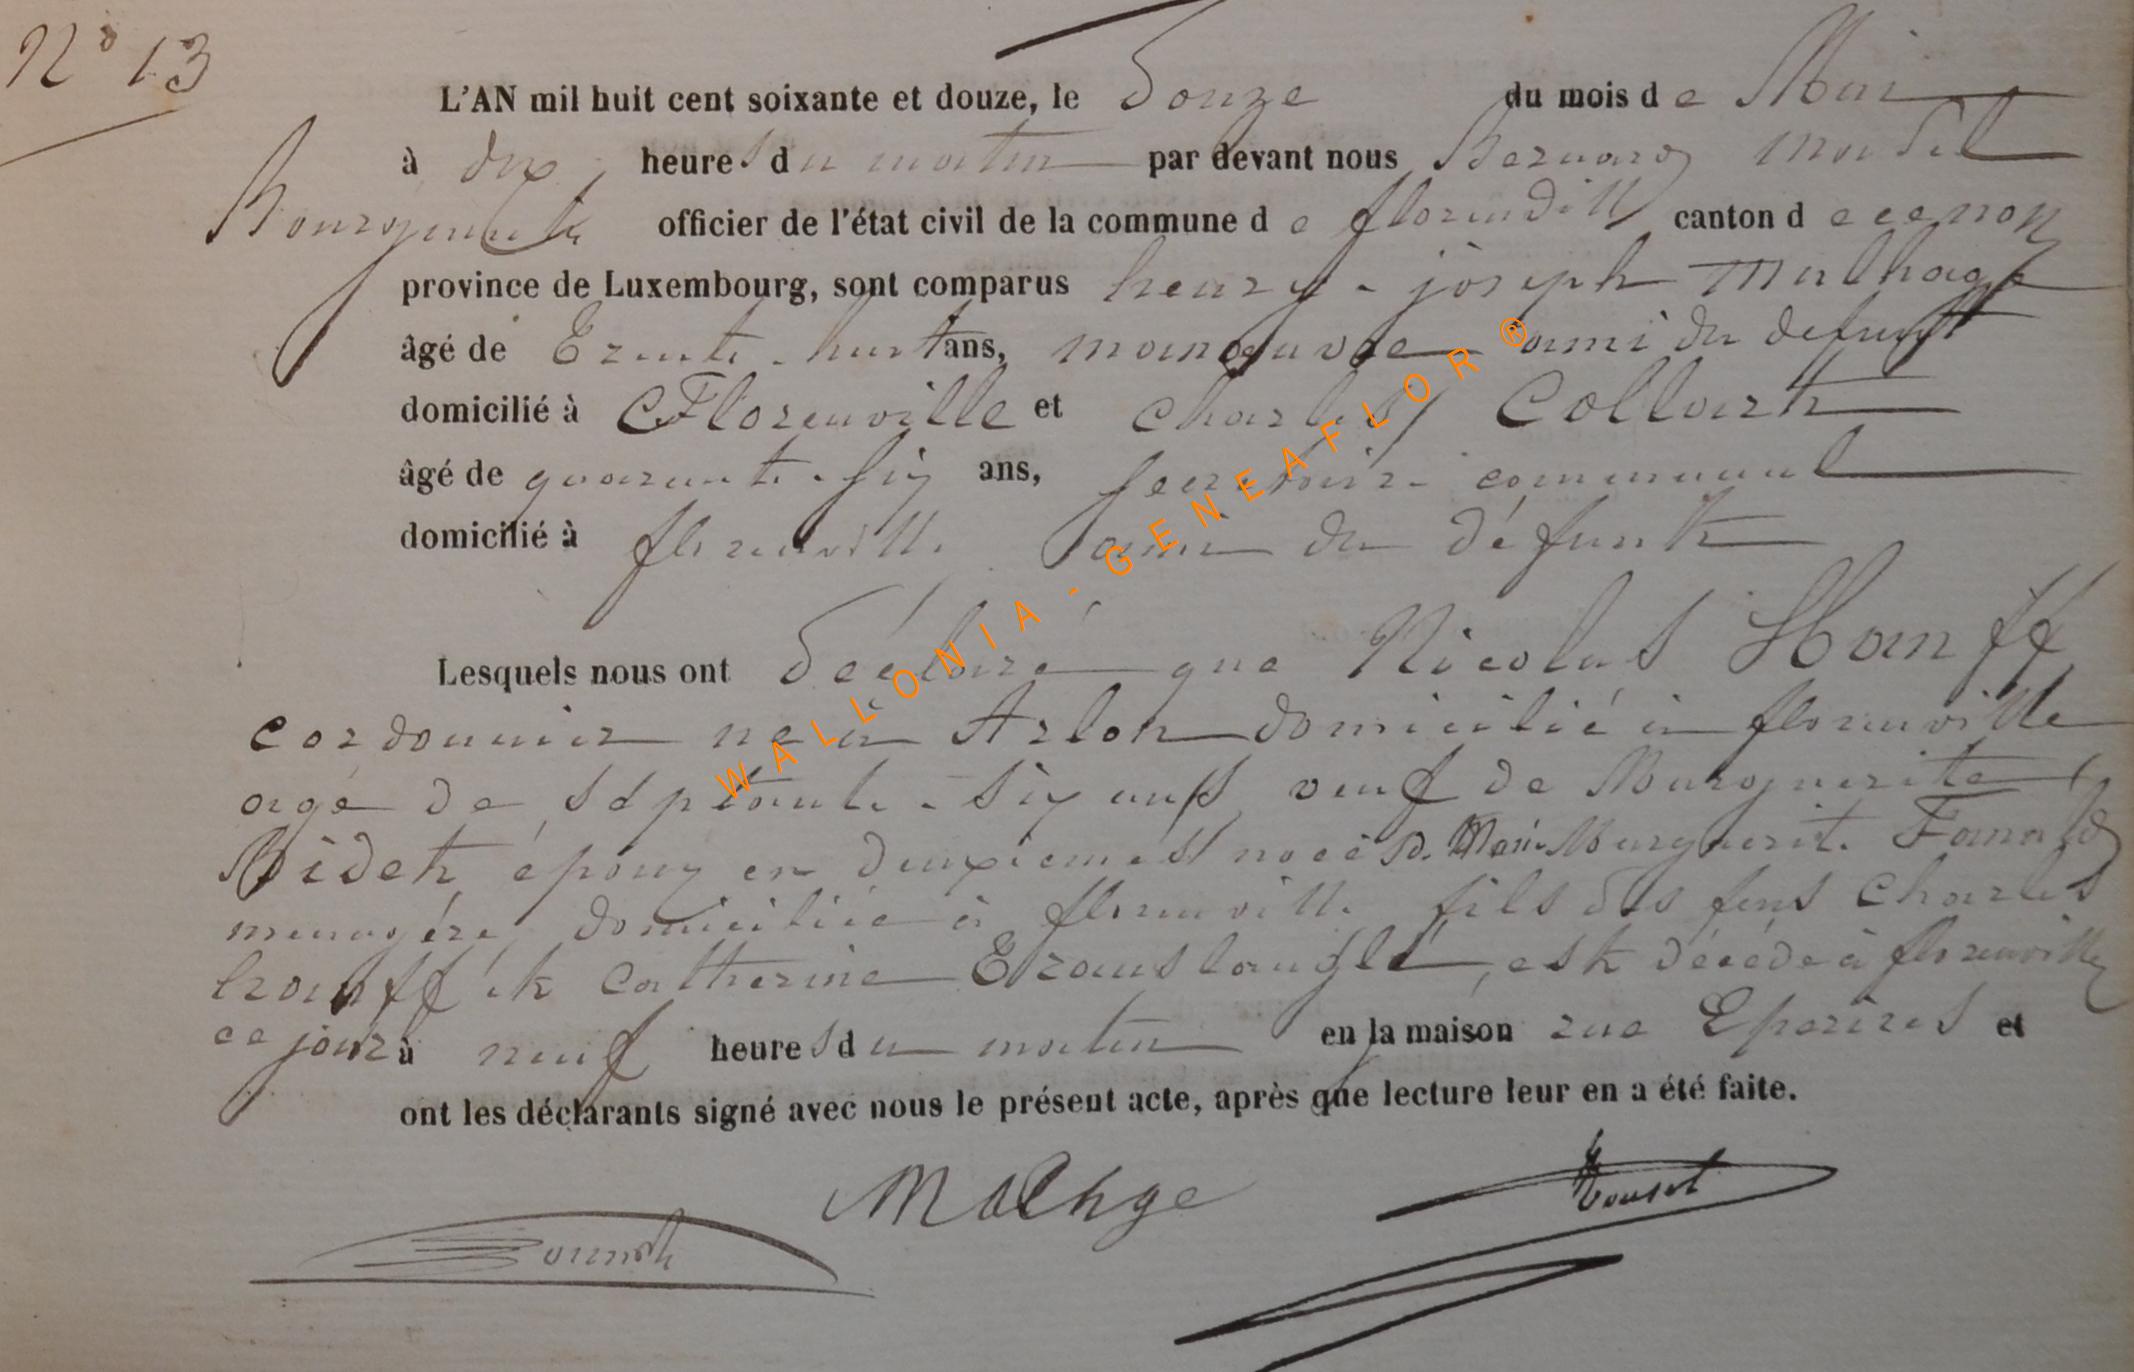 N° 13
L'AN mil huit cent soixante et douze, le Douze du mois de Mai
à dix heures du matin par devant nous Bernard
Bourgmestre officier de l'état civil de la commune de florenville canton de
province de Luxembourg, sont comparus henry - joseph Malhage
âgé de Trente - huit ans, manoeuvre ami du defunt
domicilié à Florenville et charles Collart
âgé de quarante - six ans, secretaire communal
domicilié à florenville ami du défunt
Lesquels nous ont Déclaré que Nicolas Hanff
cordonnier né à Arlon domicilié à florenville
agé de séptante - six ans, veuf de Marguerite
Bideh époux en deuxiemes noces d. Marie Marguerit.
menagére domiciliée à florenville fils des feus Charles
hanff et Catherine est décédé à florenville
ce jour à neuf heures du matin en la maison rue Eperires et
ont les déclarants signé avec nous le présent acte, après que lecture leur en a été faite.
Malhge
WALLONIA - GENEAFLOR ®